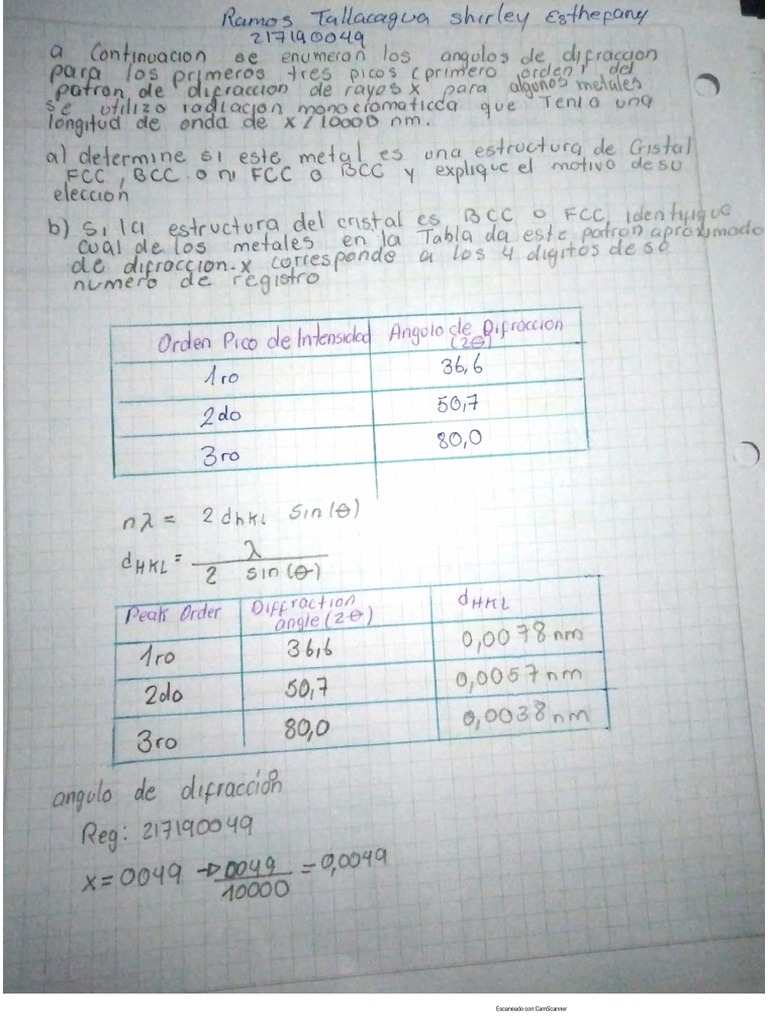 Ramos Tallacagua Shirley Esthefany
217190049
a Continuacion se enumeran los angulos de difraccion
para los primeros tres picos (primero orden) del
patron de difraccion de rayos x para algunos metales
se utilizo radiacion monocromaticda que Tenia una
longitud de onda de x/10000 nm.
a) determine si este metal es una estructura de Cristal
FCC, BCC o ni FCC o BCC y explique el motivo de su
eleccion
b) Si la estructura del cristal es BCC o FCC, identifique
cual de los metales en la Tabla da este patron aproximado
de difraccion. x corresponde a los 4 digitos de so
numero de registro
Orden Pico de Intensidad Angulo de Difraccion
(2θ)
1ro 36,6
2do 50,7
3ro 80,0
nλ = 2 dhkl Sin(θ)
dHKL = λ
2 sin(θ)
Peak Order Diffraction angle (2θ) dHKL
1ro 36,6 0,0078 nm
2do 50,7 0,0057 nm
3ro 80,0 0,0038 nm
angulo de difracción
Reg: 217190049
x = 0049 → 0049/10000 = 0,0049
Escaneado con CamScanner